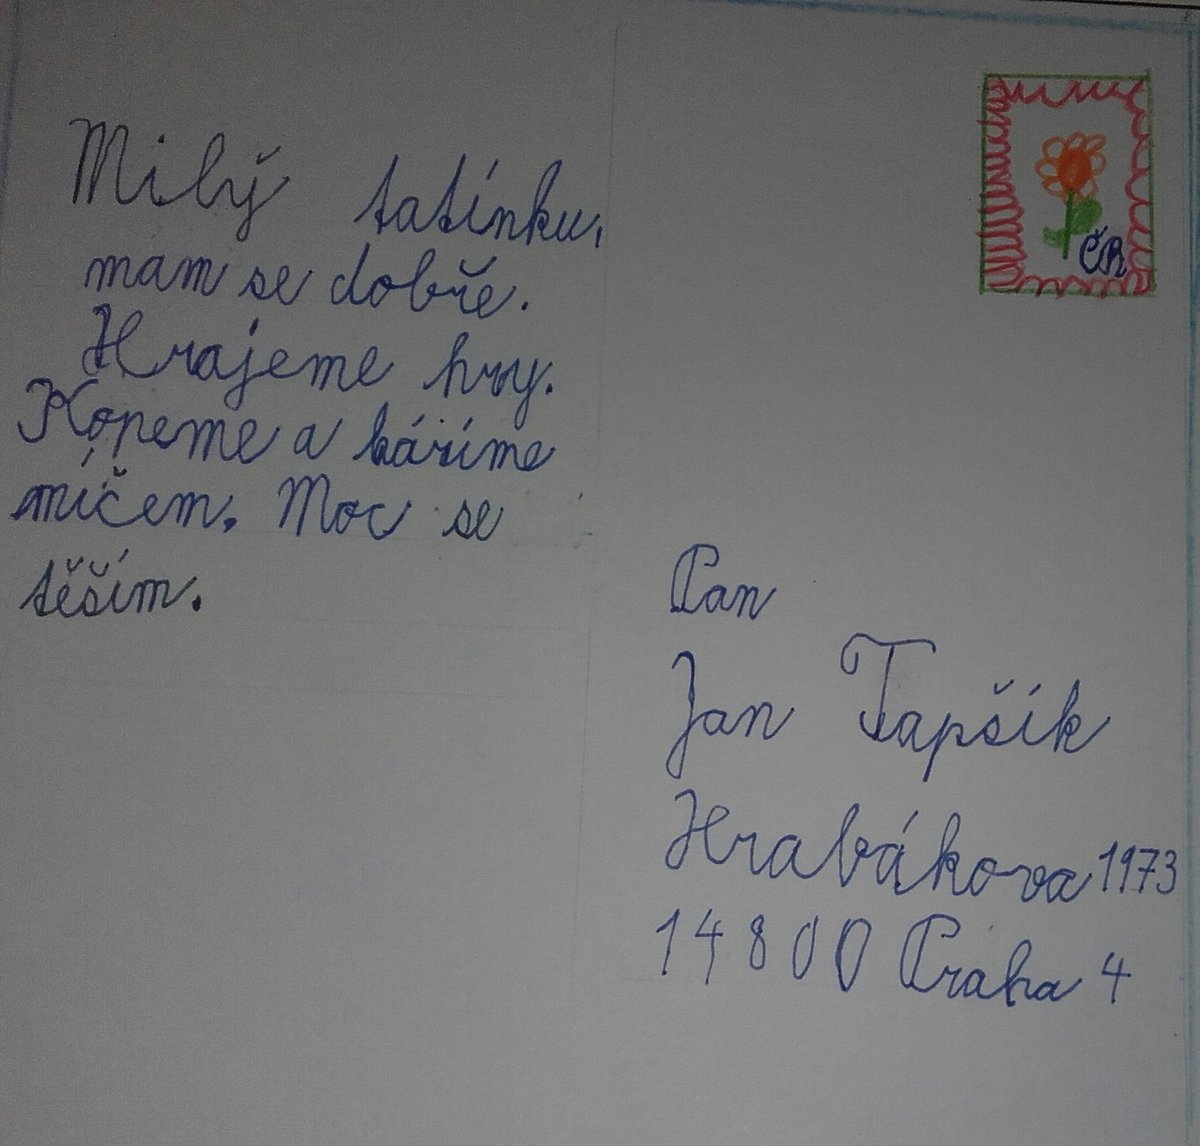 Milý tatínku,
mam se dobře.
Hrajeme hry.
Kopeme a házíme
míčem. Moc se
těším.
ČR
Pan
Jan Tapšík
Hrabákova 1973
14800 Praha 4